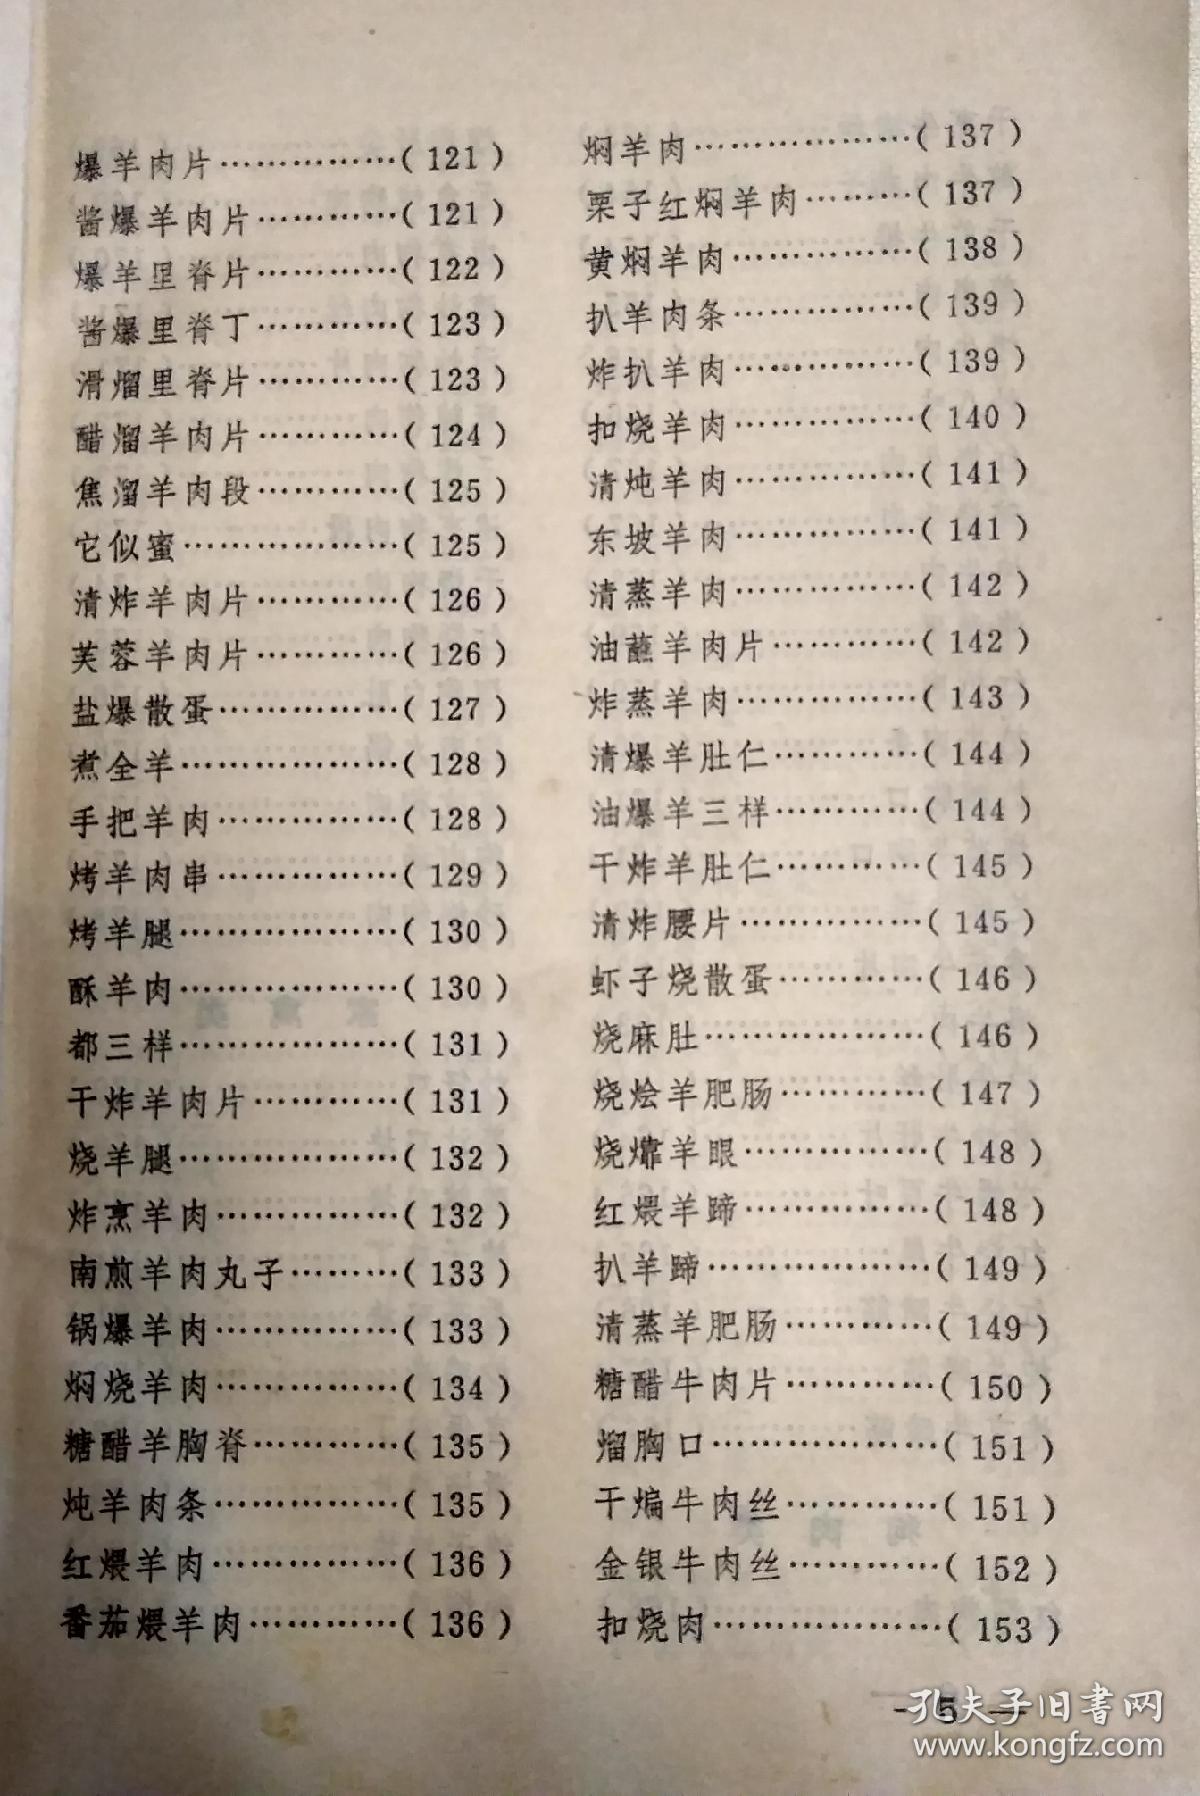 爆羊肉片……………(121)
酱爆羊肉片…………(121)
爆羊里脊片…………(122)
酱爆里脊丁…………(123)
滑熘里脊片…………(123)
醋熘羊肉片…………(124)
焦溜羊肉段…………(125)
它似蜜………………(125)
清炸羊肉片…………(126)
芙蓉羊肉片…………(126)
盐爆散蛋……………(127)
煮全羊………………(128)
手把羊肉……………(128)
烤羊肉串……………(129)
烤羊腿………………(130)
酥羊肉………………(130)
都三样………………(131)
干炸羊肉片…………(131)
烧羊腿………………(132)
炸烹羊肉……………(132)
南煎羊肉丸子………(133)
锅爆羊肉……………(133)
焖烧羊肉……………(134)
糖醋羊胸脊…………(135)
炖羊肉条……………(135)
红煨羊肉……………(136)
番茄煨羊肉…………(136)
焖羊肉………………(137)
栗子红焖羊肉………(137)
黄焖羊肉……………(138)
扒羊肉条……………(139)
炸扒羊肉……………(139)
扣烧羊肉……………(140)
清炖羊肉……………(141)
东坡羊肉……………(141)
清蒸羊肉……………(142)
油蘸羊肉片…………(142)
炸蒸羊肉……………(143)
清爆羊肚仁…………(144)
油爆羊三样…………(144)
干炸羊肚仁…………(145)
清炸腰片……………(145)
虾子烧散蛋…………(146)
烧麻肚………………(146)
烧烩羊肥肠…………(147)
烧㸆羊眼……………(148)
红煨羊蹄……………(148)
扒羊蹄………………(149)
清蒸羊肥肠…………(149)
糖醋牛肉片…………(150)
熘胸口………………(151)
干煸牛肉丝…………(151)
金银牛肉丝…………(152)
扣烧肉………………(153)
— 5 —
孔夫子旧书网
www.kongfz.com